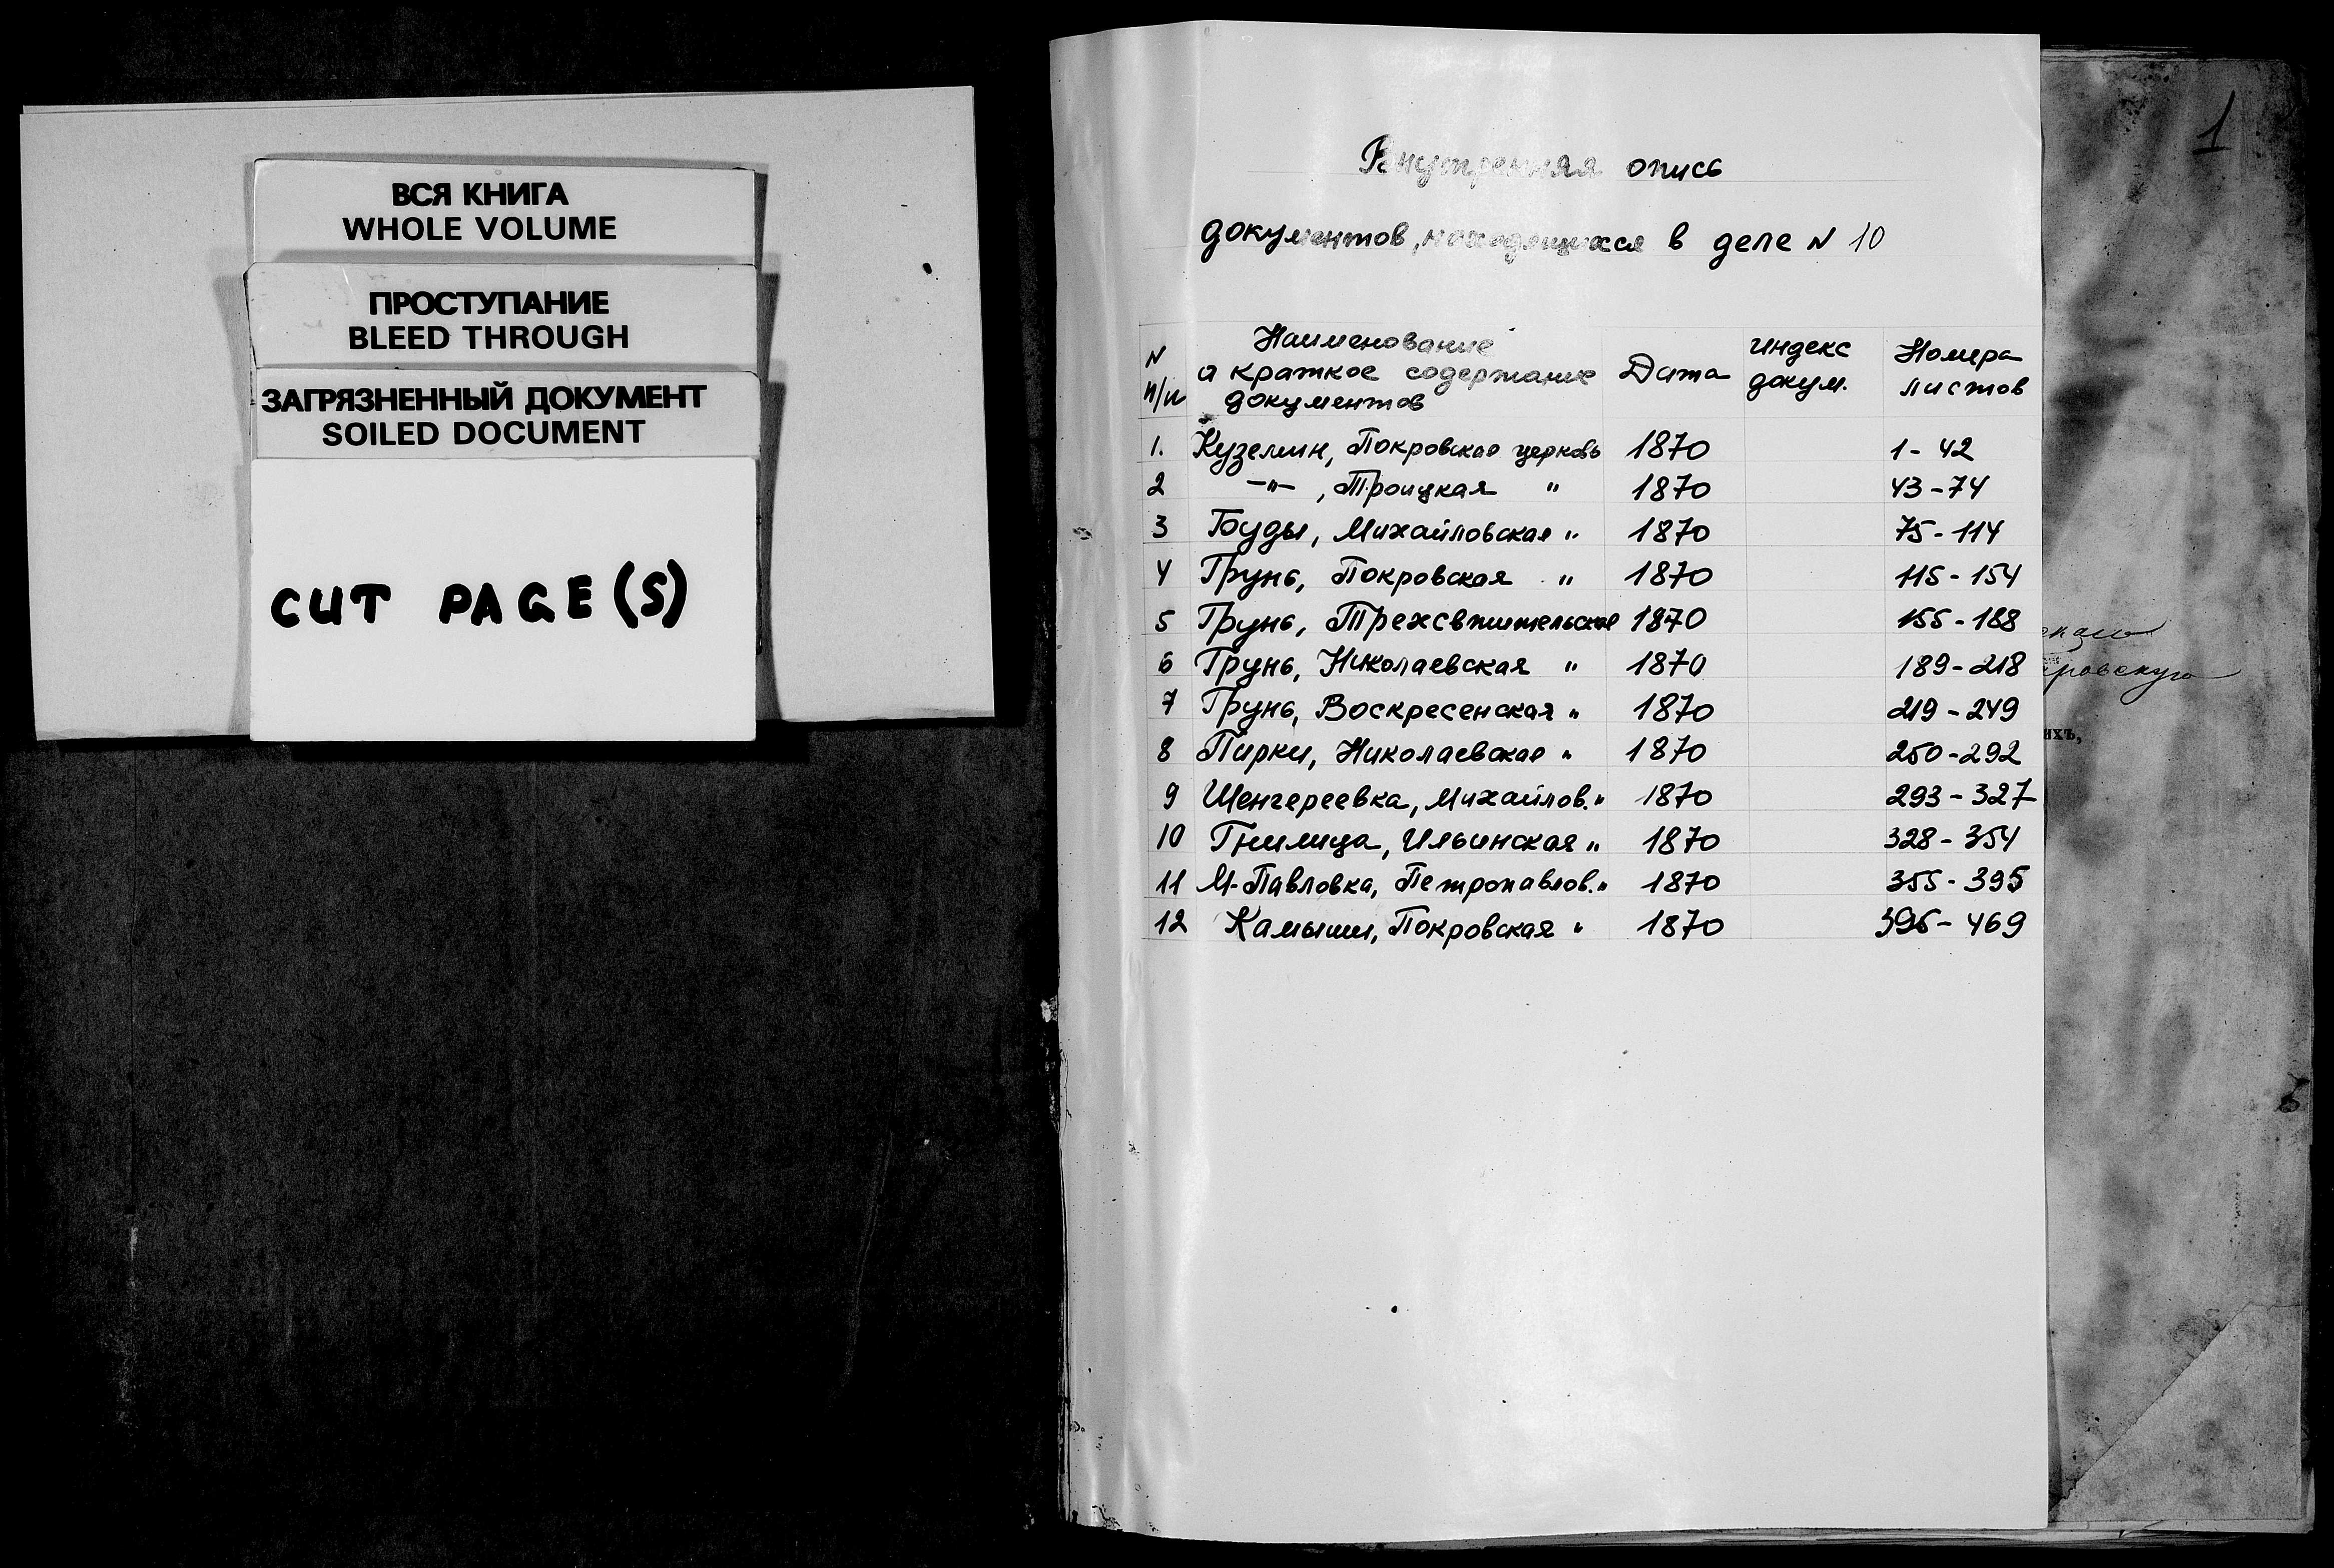 ВСЯ КНИГА
WHOLE VOLUME
ПРОСТУПАНИЕ
BLEED THROUGH
ЗАГРЯЗНЕННЫЙ ДОКУМЕНТ
SOILED DOCUMENT
CUT PAGE(S)
Внутренняя опись
документов, находящихся в деле N 10
N п/п Наименование и краткое содержание документов Дата индекс докум. Номера листов
1. Кузелин, Покровская церковь 1870 1-42
2 -"-, Троицкая " 1870 43-74
3 Буды, Михайловская " 1870 75-114
4 Грунь, Покровская " 1870 115-154
5 Грунь, Трехсвятительская 1870 155-188
6 Грунь, Николаевская " 1870 189-218
7 Грунь, Воскресенская " 1870 219-249
8 Пирки, Николаевская " 1870 250-292
9 Шенгереевка, Михайлов. " 1870 293-327
10 Гнилица, Ильинская " 1870 328-354
11 М-Павловка, Петропавлов. " 1870 355-395
12 Камыши, Покровская " 1870 396-469
1
ровскую
ихъ,